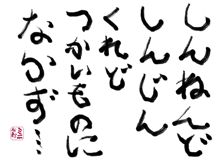 しんねんど
しんじん
くれど
つかいものに
なかず…